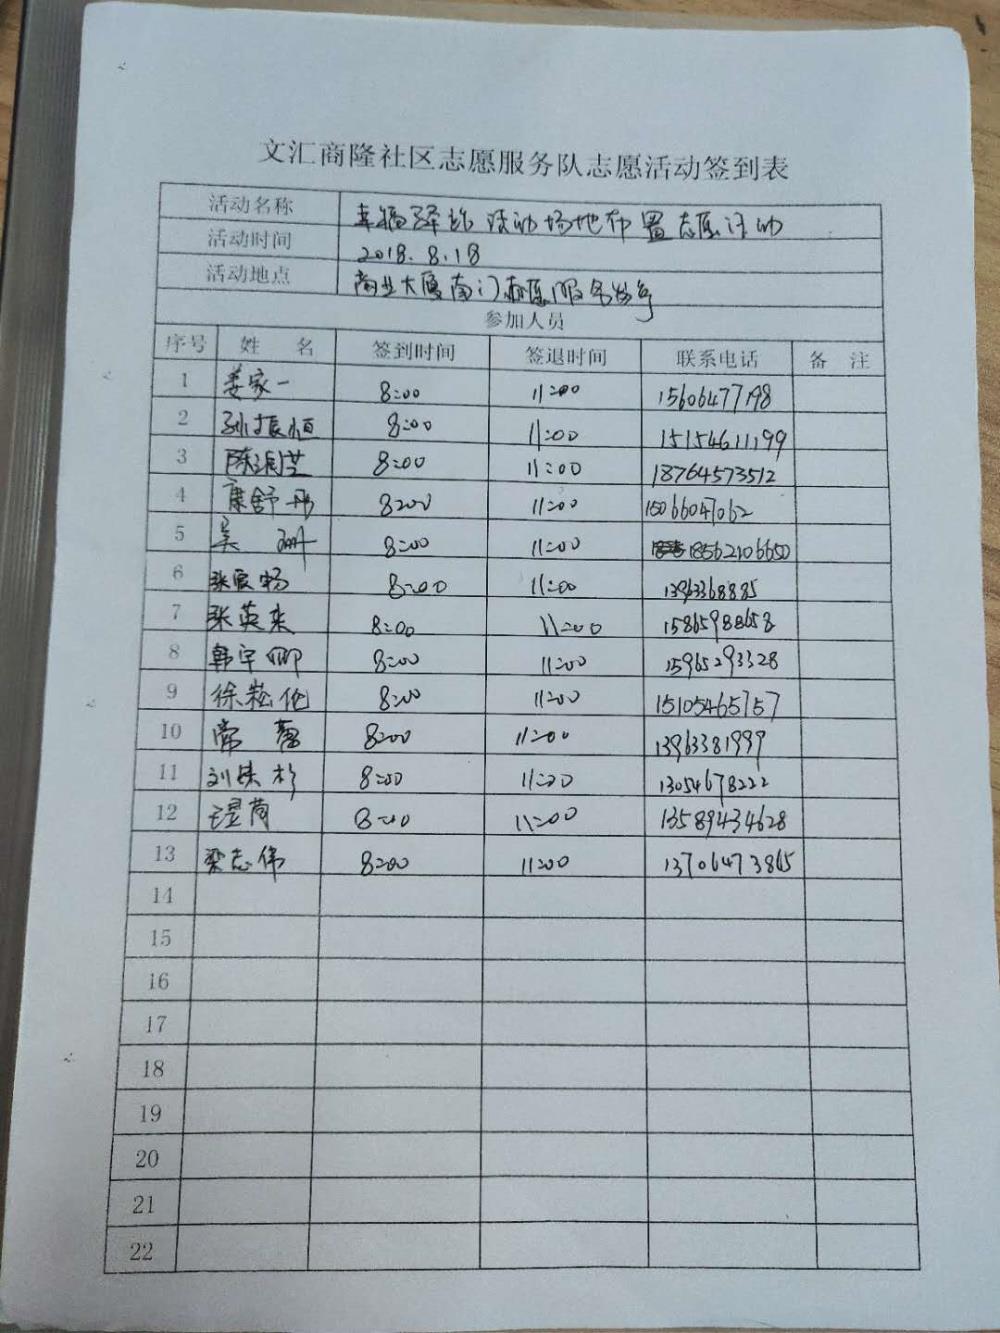 文汇商隆社区志愿服务队志愿活动签到表
活动名称 幸福驿站活动场地布置志愿活动
活动时间 2018.8.18
活动地点 商业大厦南门志愿服务岗亭
参加人员
序号 姓 名 签到时间 签退时间 联系电话 备 注
1 姜家一 8:00 11:00 15606477198
2 孙振恒 8:00 11:00 15154611199
3 陈润芝 8:00 11:00 18764573512
4 康舒丹 8:00 11:00 15066047062
5 吴 珊 8:00 11:00 18562106650
6 张宸畅 8:00 11:00 13963368885
7 张英来 8:00 11:00 15865988658
8 韩宇卿 8:00 11:00 15965293328
9 徐崧伦 8:00 11:00 15105465757
10 常 8:00 11:00 13963381999
11 刘 杉 8:00 11:00 13054678222
12 荷 8:00 11:00 13589434628
13 梁志伟 8:00 11:00 13706473865
14
15
16
17
18
19
20
21
22